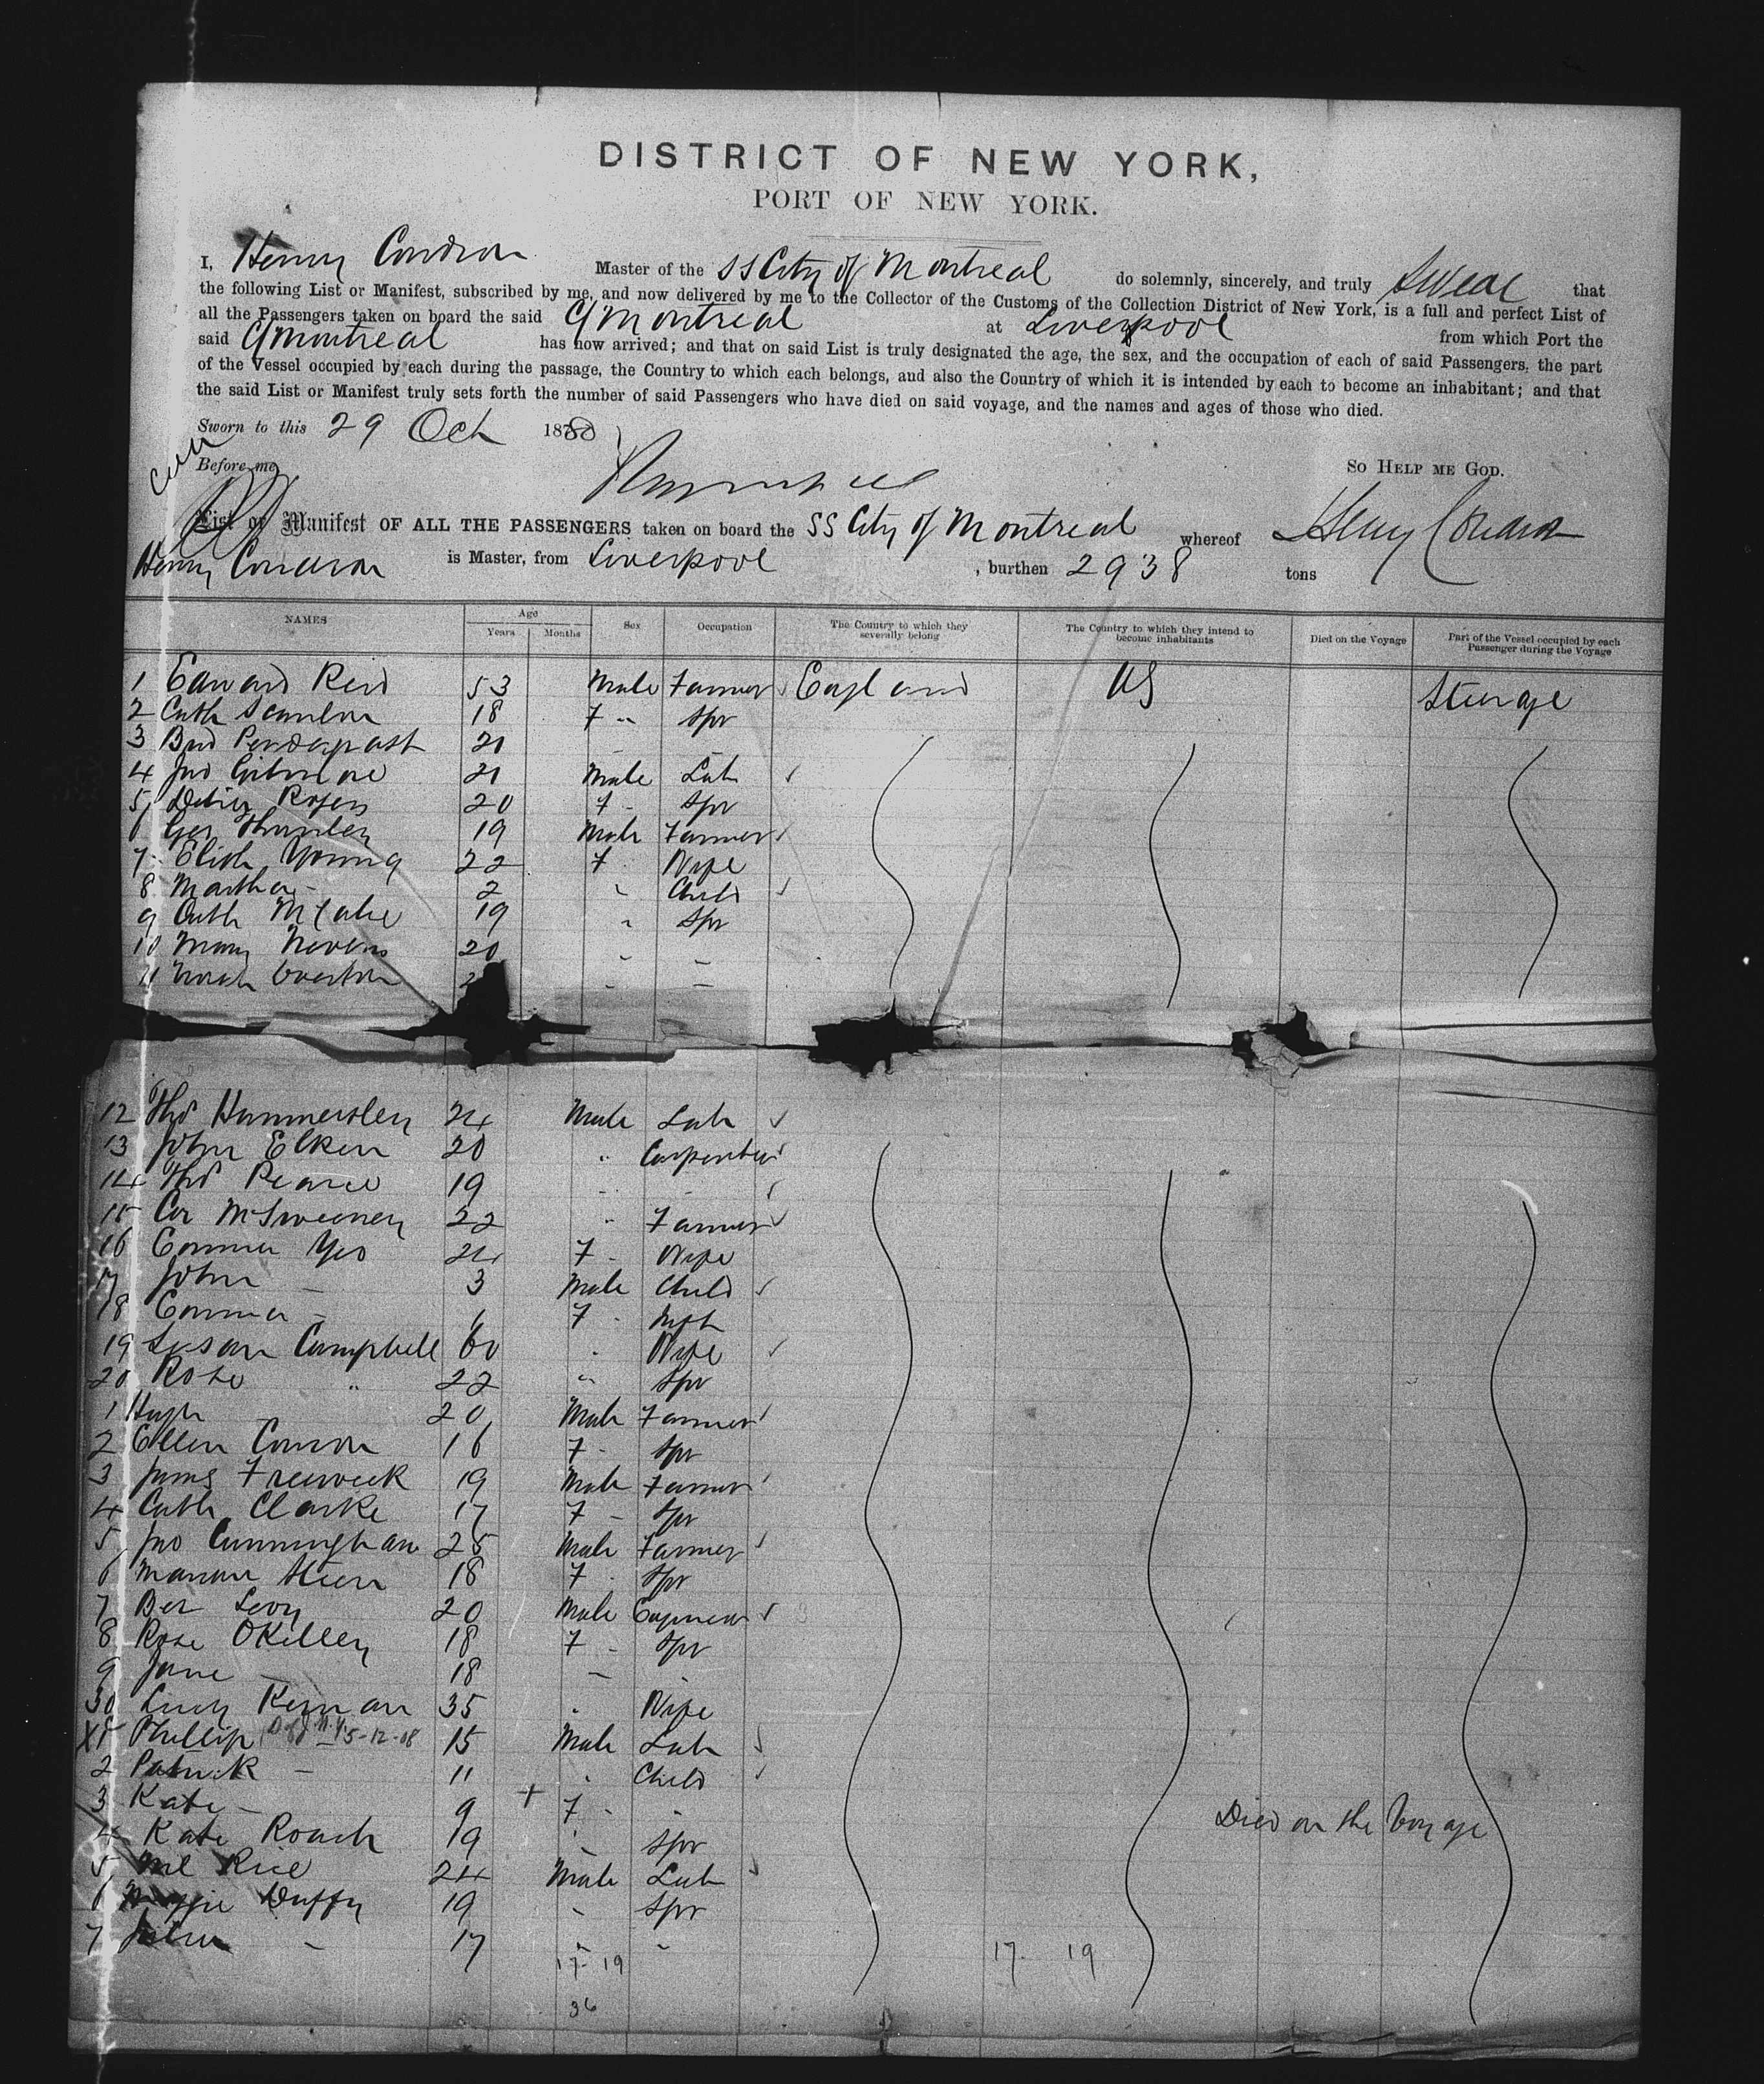 DISTRICT OF NEW YORK,
PORT OF NEW YORK.
I, Henry Condron Master of the SS City of Montreal do solemnly, sincerely, and truly Swear that
the following List or Manifest, subscribed by me, and now delivered by me to the Collector of the Customs of the Collection District of New York, is a full and perfect List of
all the Passengers taken on board the said C/Montreal at Liverpool from which Port the
said C/Montreal has now arrived; and that on said List is truly designated the age, the sex, and the occupation of each of said Passengers, the part
of the Vessel occupied by each during the passage, the Country to which each belongs, and also the Country of which it is intended by each to become an inhabitant; and that
the said List or Manifest truly sets forth the number of said Passengers who have died on said voyage, and the names and ages of those who died.
Sworn to this 29 Oct 1880
Before me, So Help me God.
List or Manifest OF ALL THE PASSENGERS taken on board the SS City of Montreal whereof Henry Condron
Henry Condron is Master, from Liverpool , burthen 2938 tons
NAMES Age Years Months Sex Occupation The Country to which they severally belong The Country to which they intend to become inhabitants Died on the Voyage Part of the Vessel occupied by each Passenger during the Voyage
1 Edward Reid 53 Male Farmer England US Steerage
2 Cath Scanlon 18 F " Spr
3 Brid Pendergast 21
4 Jno Gilmore 21 Male Lab
5 Rogers 20 F - Spr
6 Geo 19 Male Farmer
7 Elizth Young 22 F Wife
8 Martha - 2 " Child
9 Cath McCabe 19 " Spr
10 Mary Nevens 20 " -
11 Norah - -
12 Thos Hammersley 24 Male Lab
13 John Elken 20 " Carpenter
14 Thos Pearce 19 " -
15 Cor McSweeney 22 " Farmer
16 Emma Yeo 24 F - Wife
17 John - 3 Male Child
18 Emma - F - Inft
19 Susan Campbell 60 " Wife
20 Rose " 22 " Spr
1 Hugh 20 Male Farmer
2 Ellen Conron 16 F - Spr
3 James Freeweek 19 Male Farmer
4 Cath Clarke 17 F - Spr
5 Jno Cunningham 25 Male Farmer
6 18 F - Spr
7 Ber Levy 20 Male Engineer
8 Rose OKelley 18 F - Spr
9 Jane - 18 - -
30 Lucy Kernan 35 " Wife
X1 Phillip 5-12-08 15 Male Lab
2 Patrick - 11 " Child
3 Kate - 9 + F - - Died on the Voyage
4 Kate Roach 19 " Spr
5 Ml Rice 24 Male Lab
6 Maggie Duffy 19 " Spr
7 - 17 " -
17-19 17- 19
36